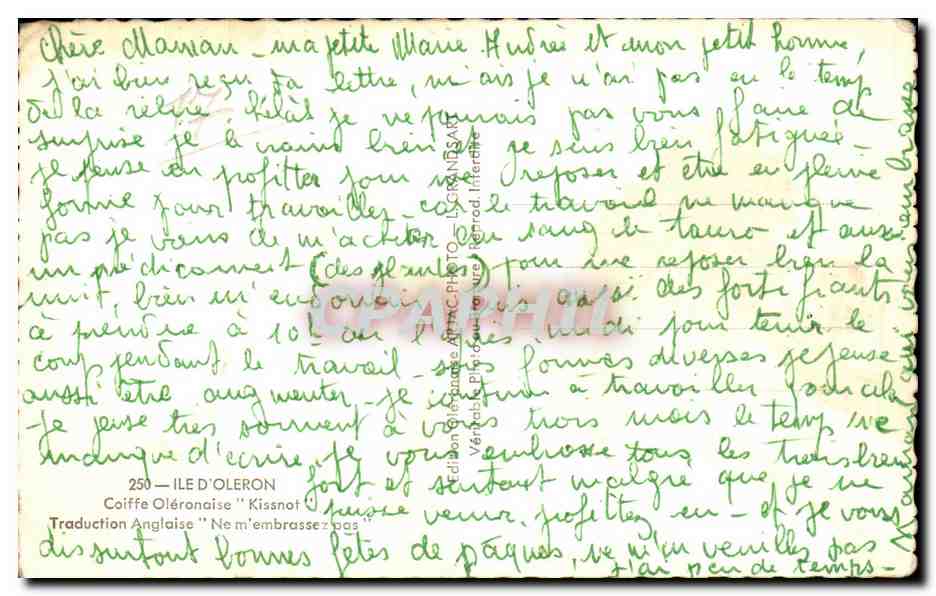 Chère Maman - ma petite Marie Andrée et mon petit homme,
j'ai bien reçu ta lettre, mais je n'ai pas eu le temps
de la relire. hélas je ne pourrais pas vous faire de
surprise je le crains bien et je suis bien fatiguée -
je pense en profitter pour me reposer et être en pleine
forme pour travailler - car le travail ne manque
pas je viens de m'acheter du sang de taureau et aussi
un médicament (des plantes) pour me reposer bien la
nuit, bien m'endormir, puis aussi des fortifiants
à prendre à 10h ou l'après midi pour tenir le
coup pendant le travail - sous formes diverses je pense
aussi être augmenter - je continue à travailler pour cela
- je pense très souvent à vous trois mais le temps me
manque d'écrire, je vous embrasse tous les trois bien
fort et surtout malgré que je ne
puisse venir, profittez en - et je vous
dis surtout bonnes fêtes de pâques, ne m'en veuillez pas
j'ai peu de temps -
Maman qui vous embrasse
250 — ILE D'OLERON
Coiffe Oléronaise "Kissnot"
Traduction Anglaise "Ne m'embrassez pas"
Edition Oléronaise ARJAC-PHOTO — L. GRANDSART
Véritable Photo au Bromure - Reprod. Interdite
CPAPHIL